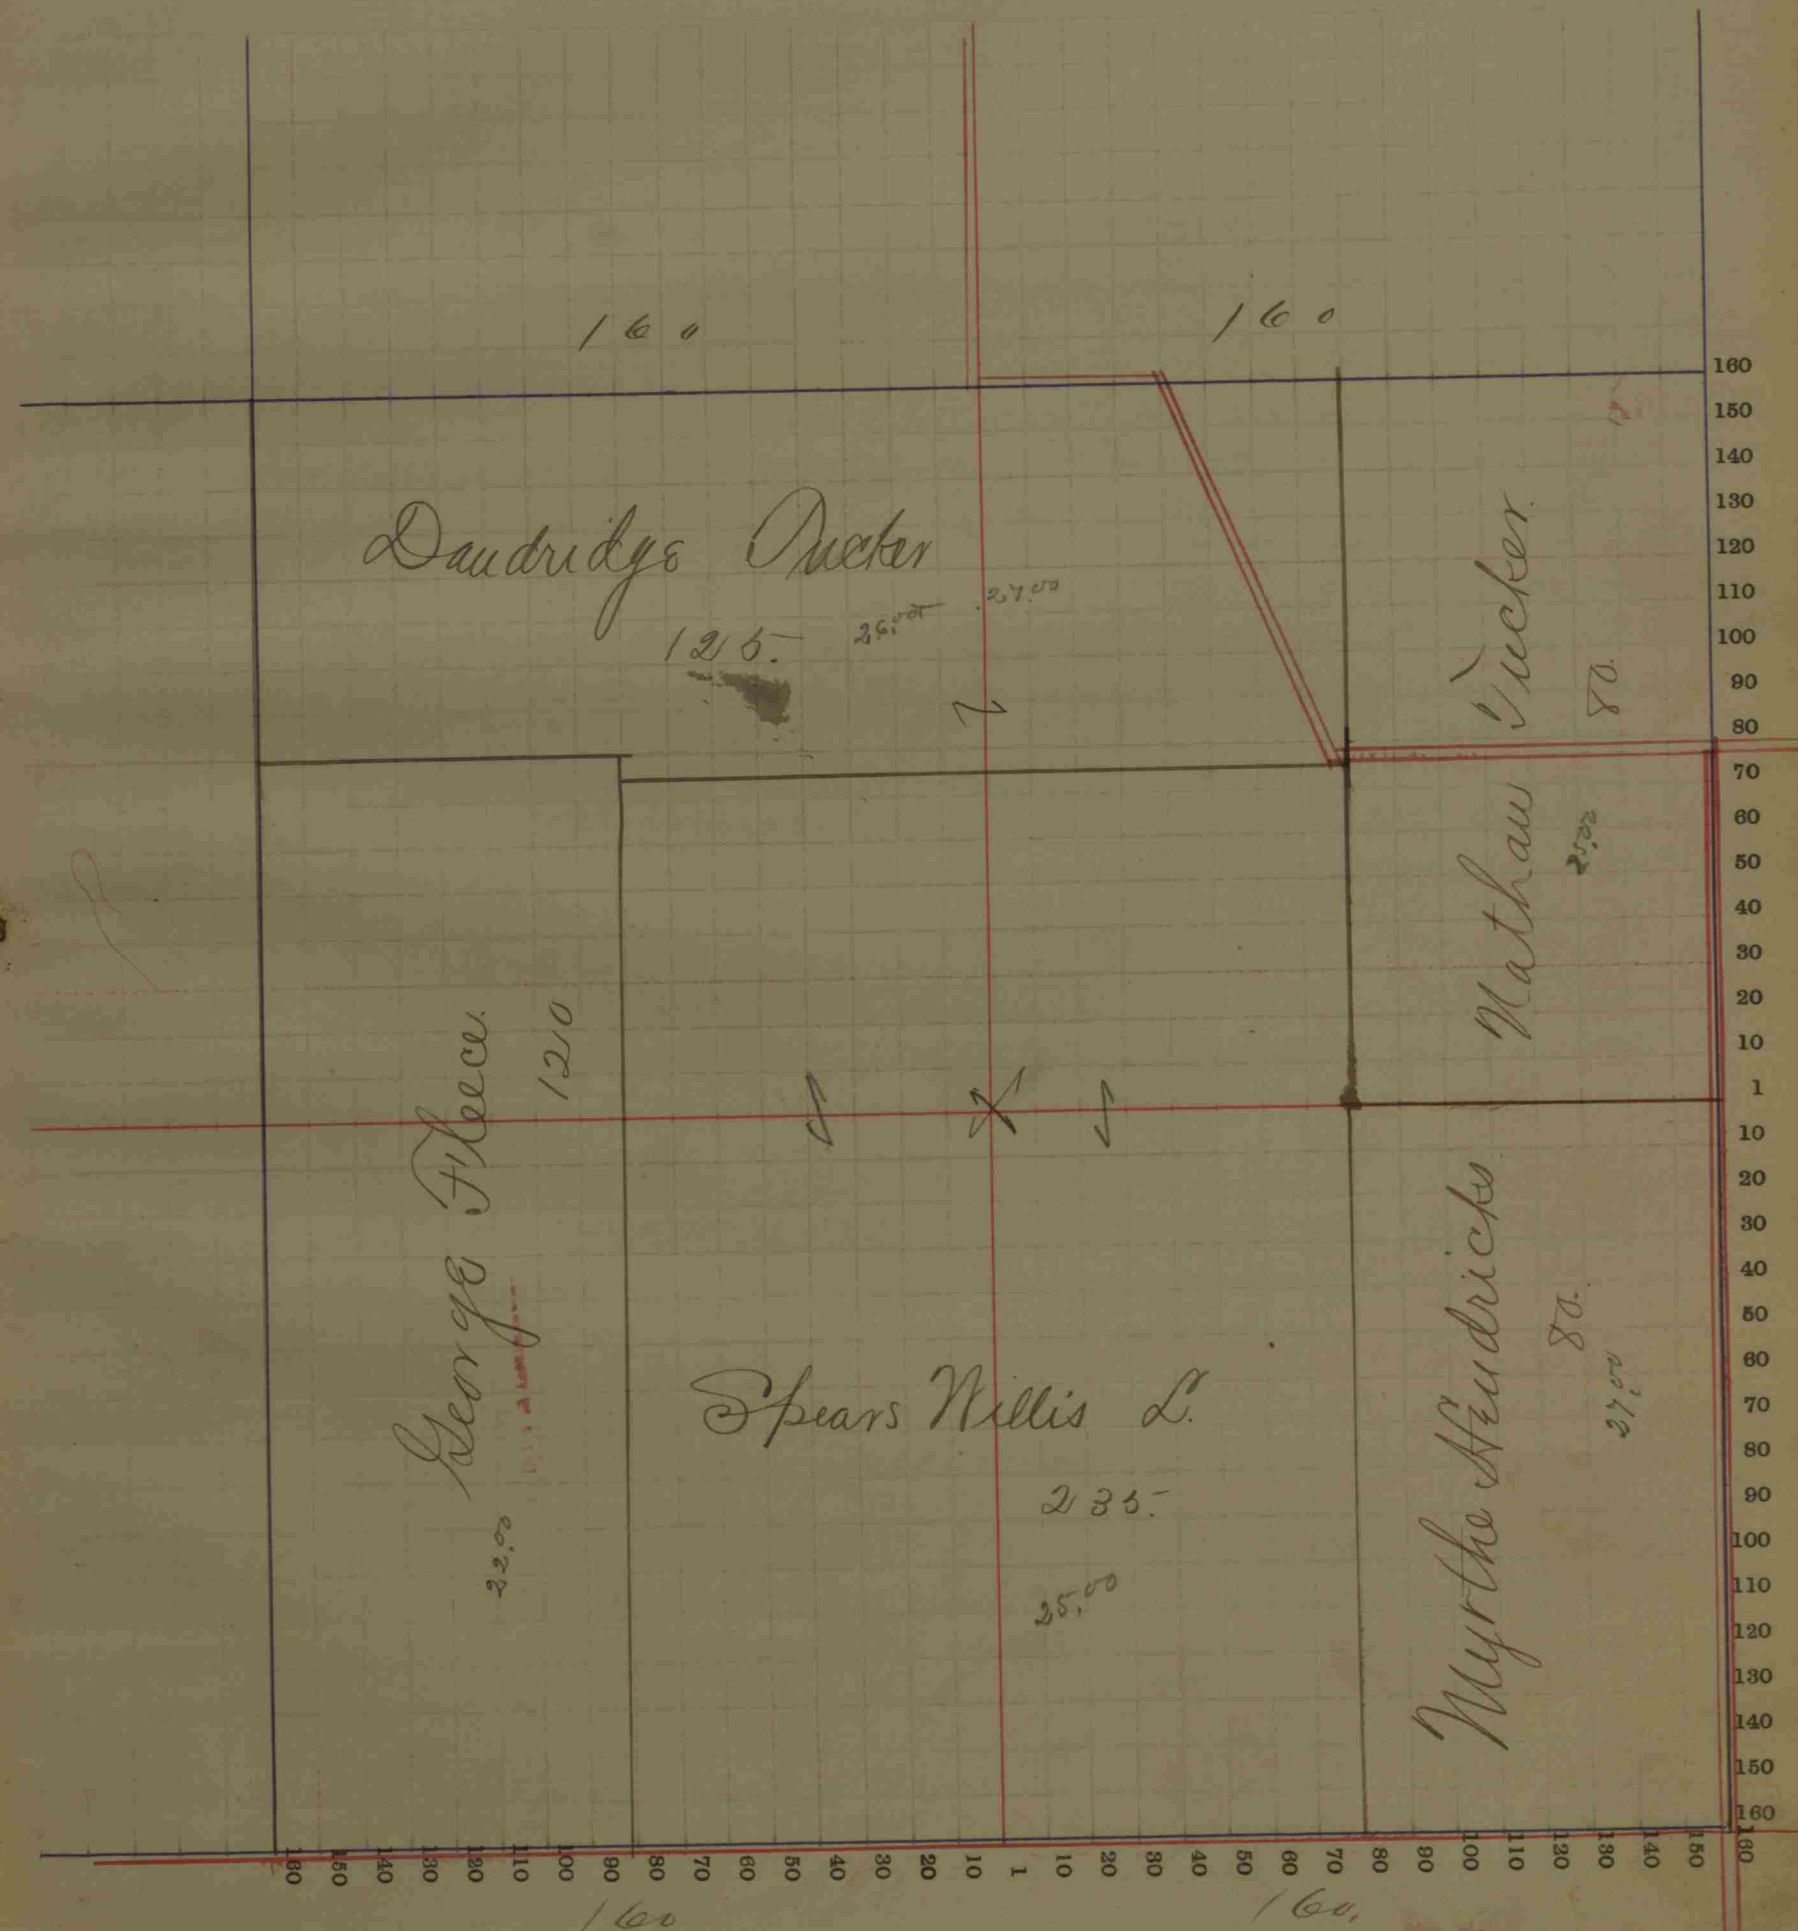 160
160
Dandridge Tucker
125.
26.00
27.00
Nathan Tucker.
80.
25.00
George Fleece.
120
22.00
Spears Willis L.
235.
25.00
Myrthe Hendricks
80.
27.00
160
150
140
130
120
110
100
90
80
70
60
50
40
30
20
10
1
10
20
30
40
50
60
70
80
90
100
110
120
130
140
150
160
160 150 140 130 120 110 100 90 80 70 60 50 40 30 20 10 1 10 20 30 40 50 60 70 80 90 100 110 120 130 140 150 160
160
160.